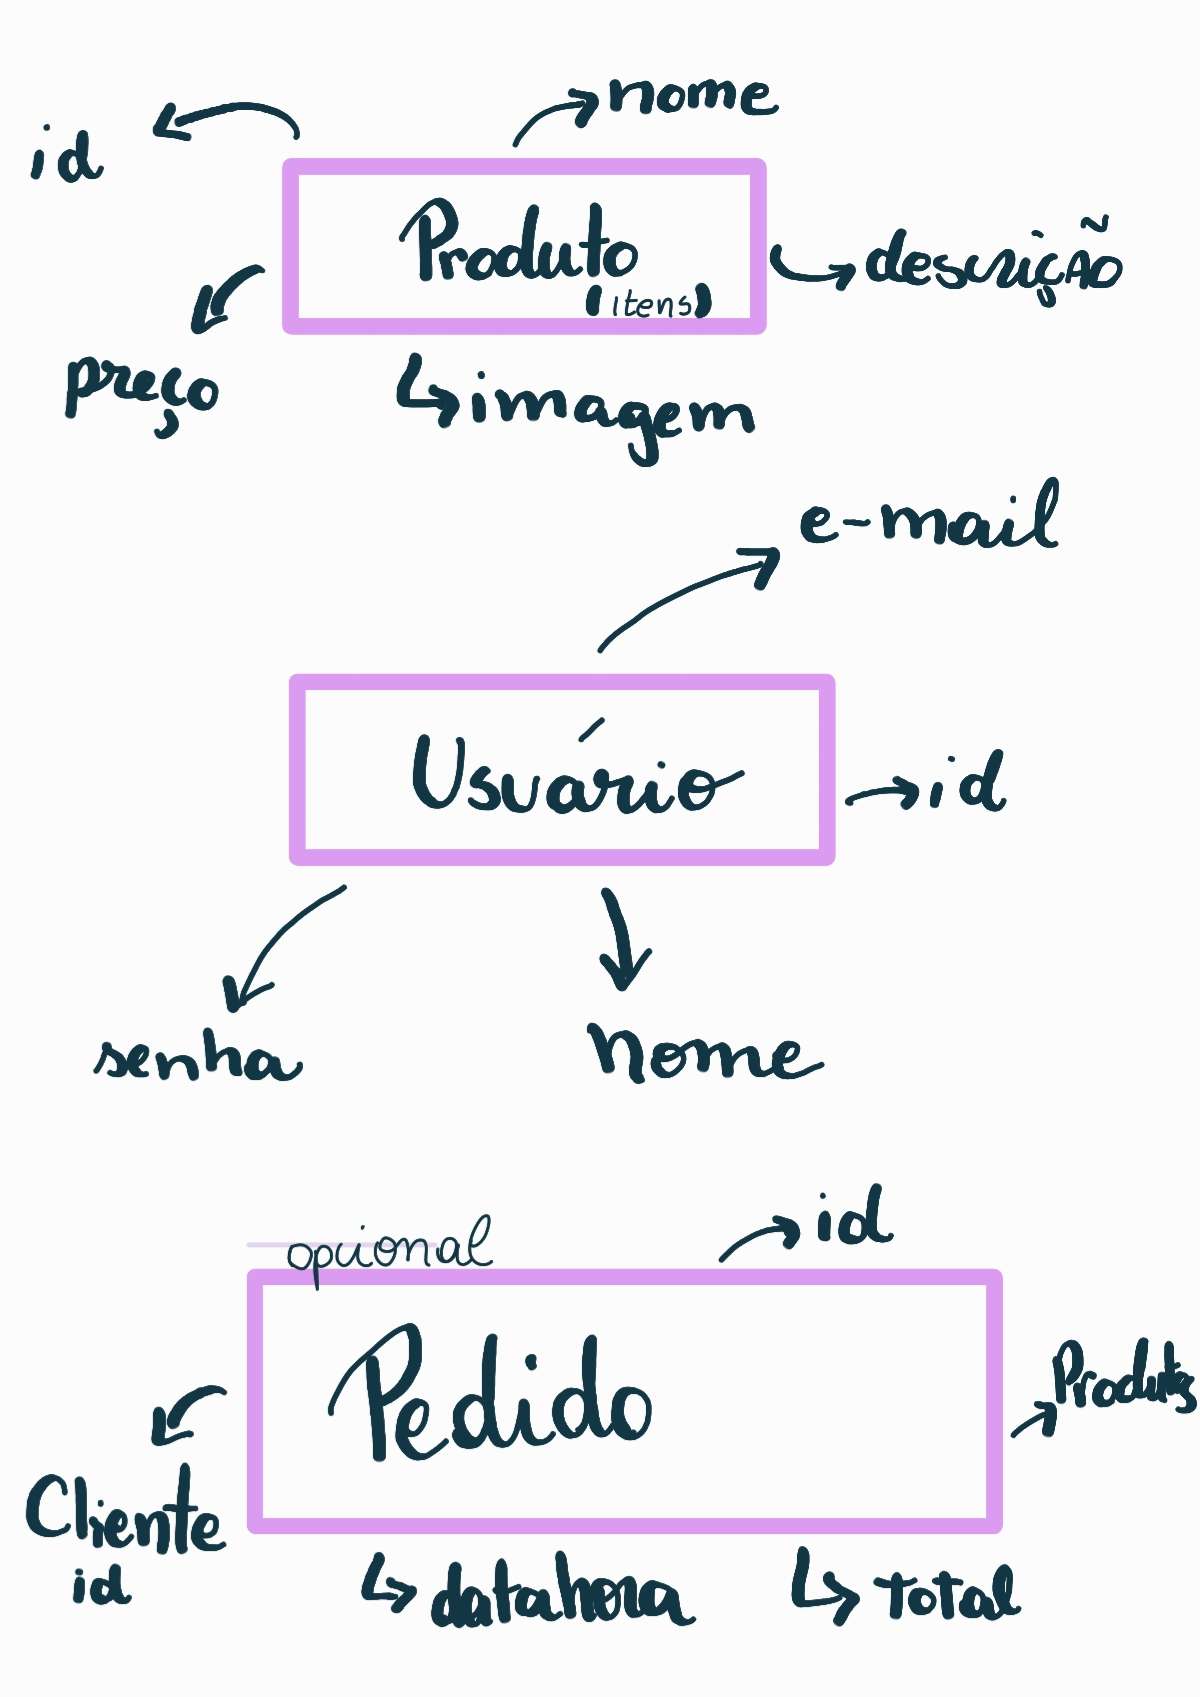 nome
id
Produto
(itens)
descrição
preço
imagem
e-mail
Usuário
id
senha
nome
opcional
id
Pedido
Produtos
Cliente
id
datahora
total